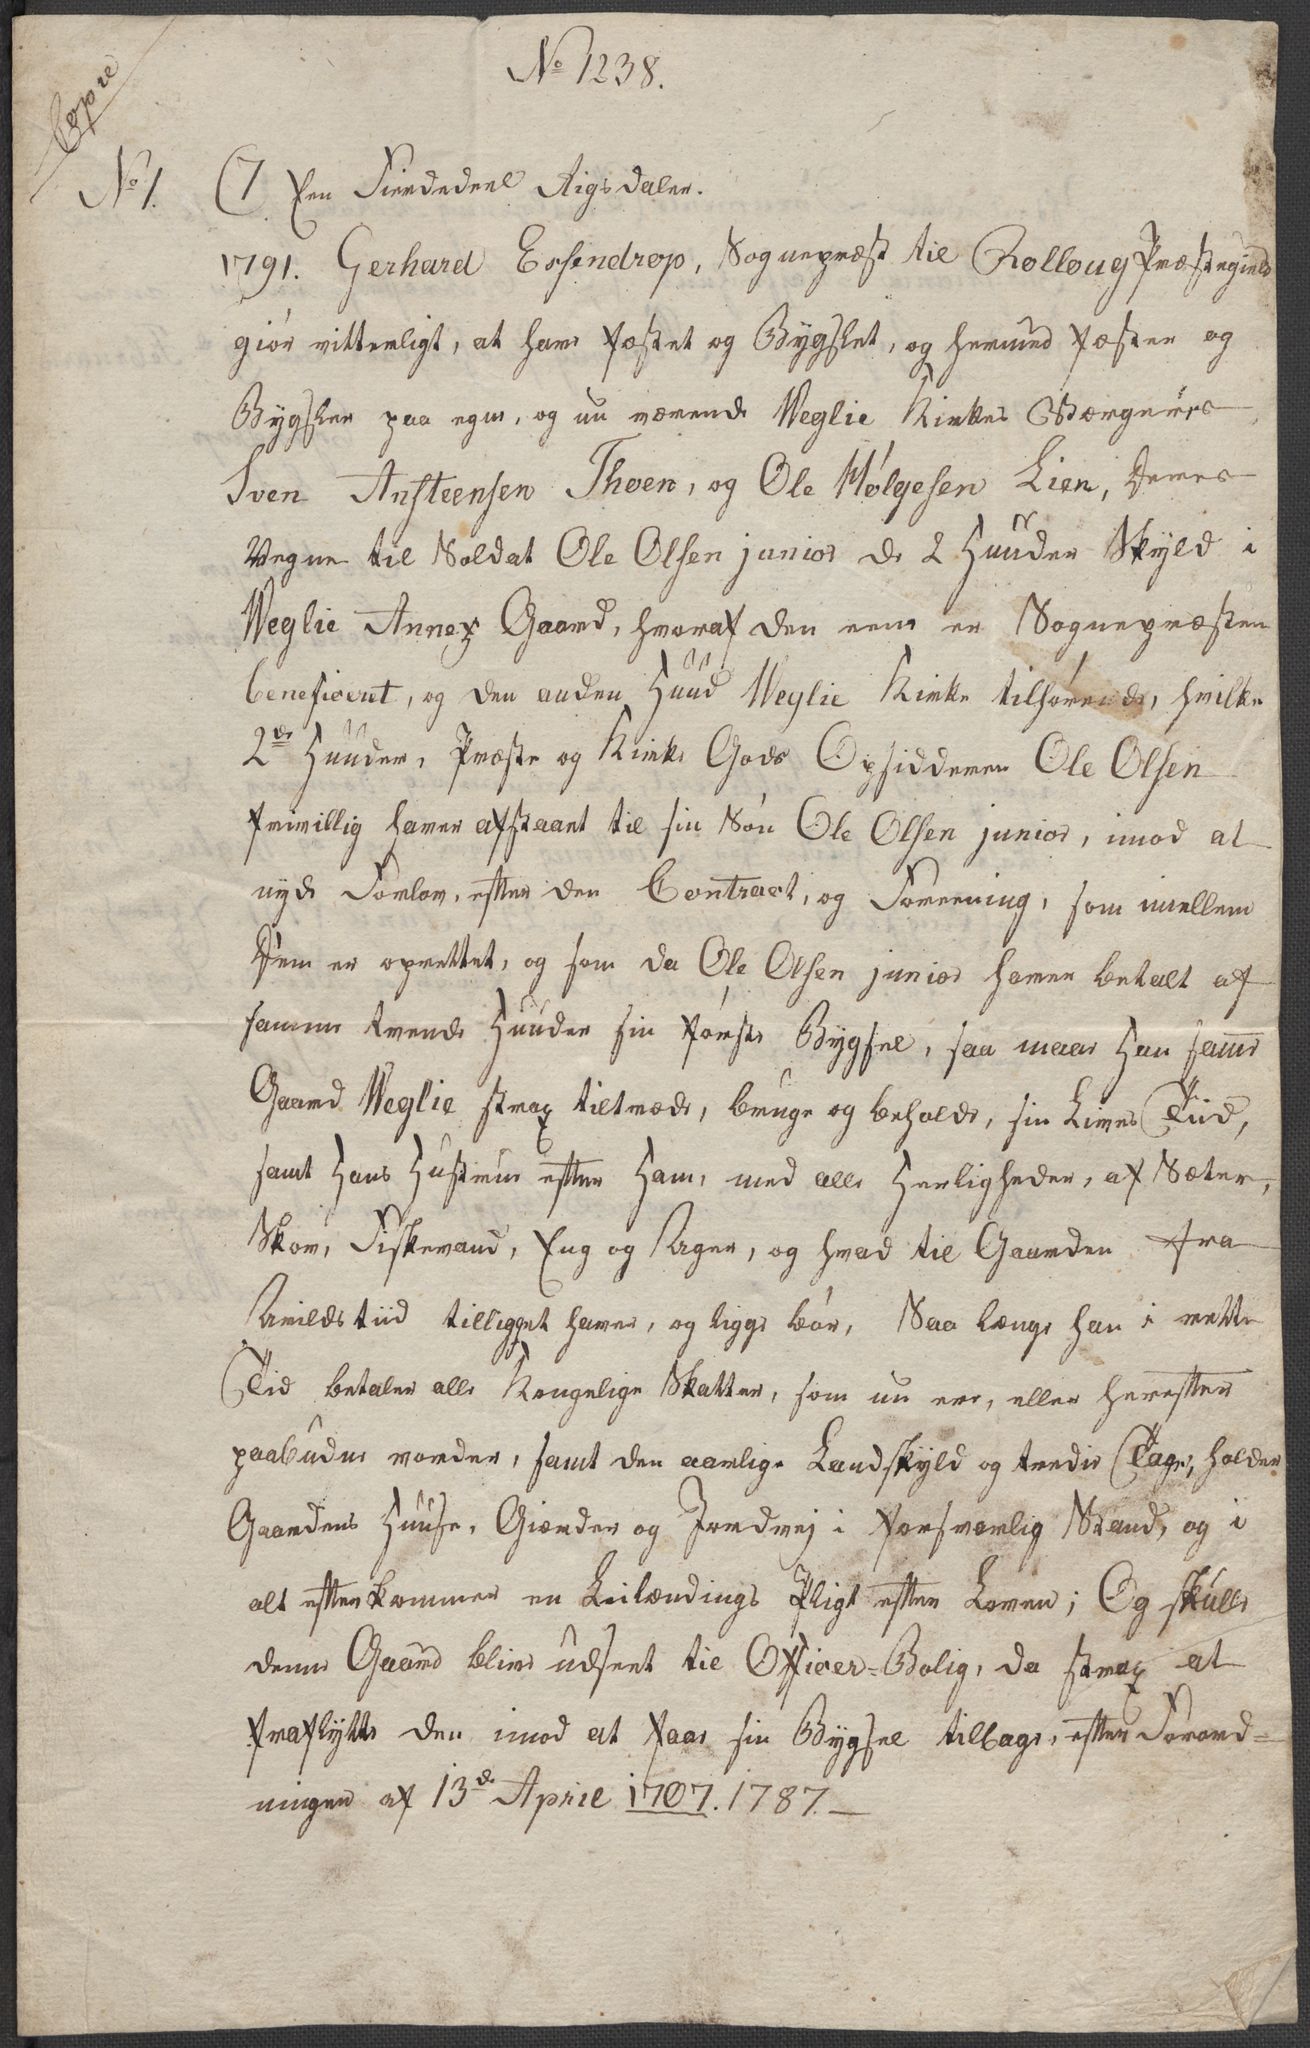 No 1238.
Copie
No 1. C7 Een Fierdedeel Rigsdaler.
1791. Gerhard Essendrop, Sognepræst til Rolloug Præstegield
giör vitterligt, at have fæstet og Bygslet, og hermed fæster og
Bygsler paa egne, og nu værende Weglie Kirkes Værgeres
Sven Ansteensen Thoen, og Ole Hölgesen Lien, deres
Vegne til Soldat Ole Olsen junior de 2 Huuder Skyld i
Weglie Annex Gaard, hvoraf den eene er Sognepræsten
beneficeret, og den anden Huud Weglie Kirke tilhörende, hvilke
2de Huuder, Præste og Kirke Gods Opsidderen Ole Olsen
frivillig haver afstaaet til sin Sön Ole Olsen junior, imod at
nyde Forlov, efter den Contract, og Foreening, som imellem
Dem er oprettet, og som da Ole Olsen junior haver betalt af
samme tvende Huuder sin förste Bygsel, saa maae Han samme
Gaard Weglie strax tiltræde, bruge og beholde, sin Lives Tiid,
samt Hans Hustrue efter Ham, med alle Herligheder, af Sæter,
Skov, Fiskevand, Eng og Ager, og hvad til Gaarden fra
Arilds tiid tilligget haver, og ligge bör, Saa længe han i rette
Tid betaler alle Kongelige Skatter, som nu ere, eller herefter
paabudne vorder, samt den aarlige Landskyld og tredie Tage, holder
Gaardens Huuse, Gierder og Jordvej i forsvarlig Stand, og i
alt efterkommer en Leilændings Pligt efter Loven; Og skulle
denne Gaard blive udseet til Officer=Bolig, da strax at
fraflytte den imod at faae sin Bygsel tilbage, efter Forord=
ningen af 13de April 1707. 1787.